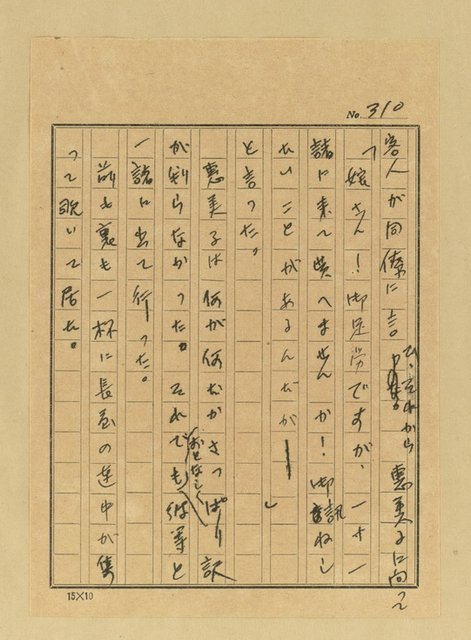 No. 310
客人が同僚に言ひ、それから 惠美子に向って
「嫁さん!御足労ですが、一寸一
諸に来て貰へませんか!御訊ねし
たいことがあるんだが──」
と言った。
惠美子は何が何だかさっぱり訳
が判らなかった。それでもおとなしく彼等と
一諸に出て行った。
前も裏も一杯に長屋の連中が集
って覗いて居た。
15×10